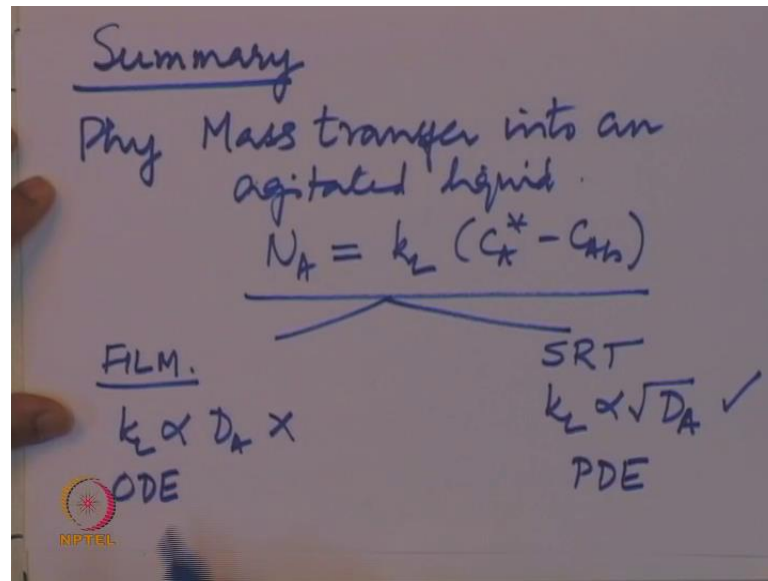 Summary
Phy Mass transfer into an
agitated liquid.
N_A = k_L (C_A^* - C_Ab)
FILM.
k_L ∝ D_A ×
ODE
SRT
k_L ∝ √D_A ✓
PDE
NPTEL